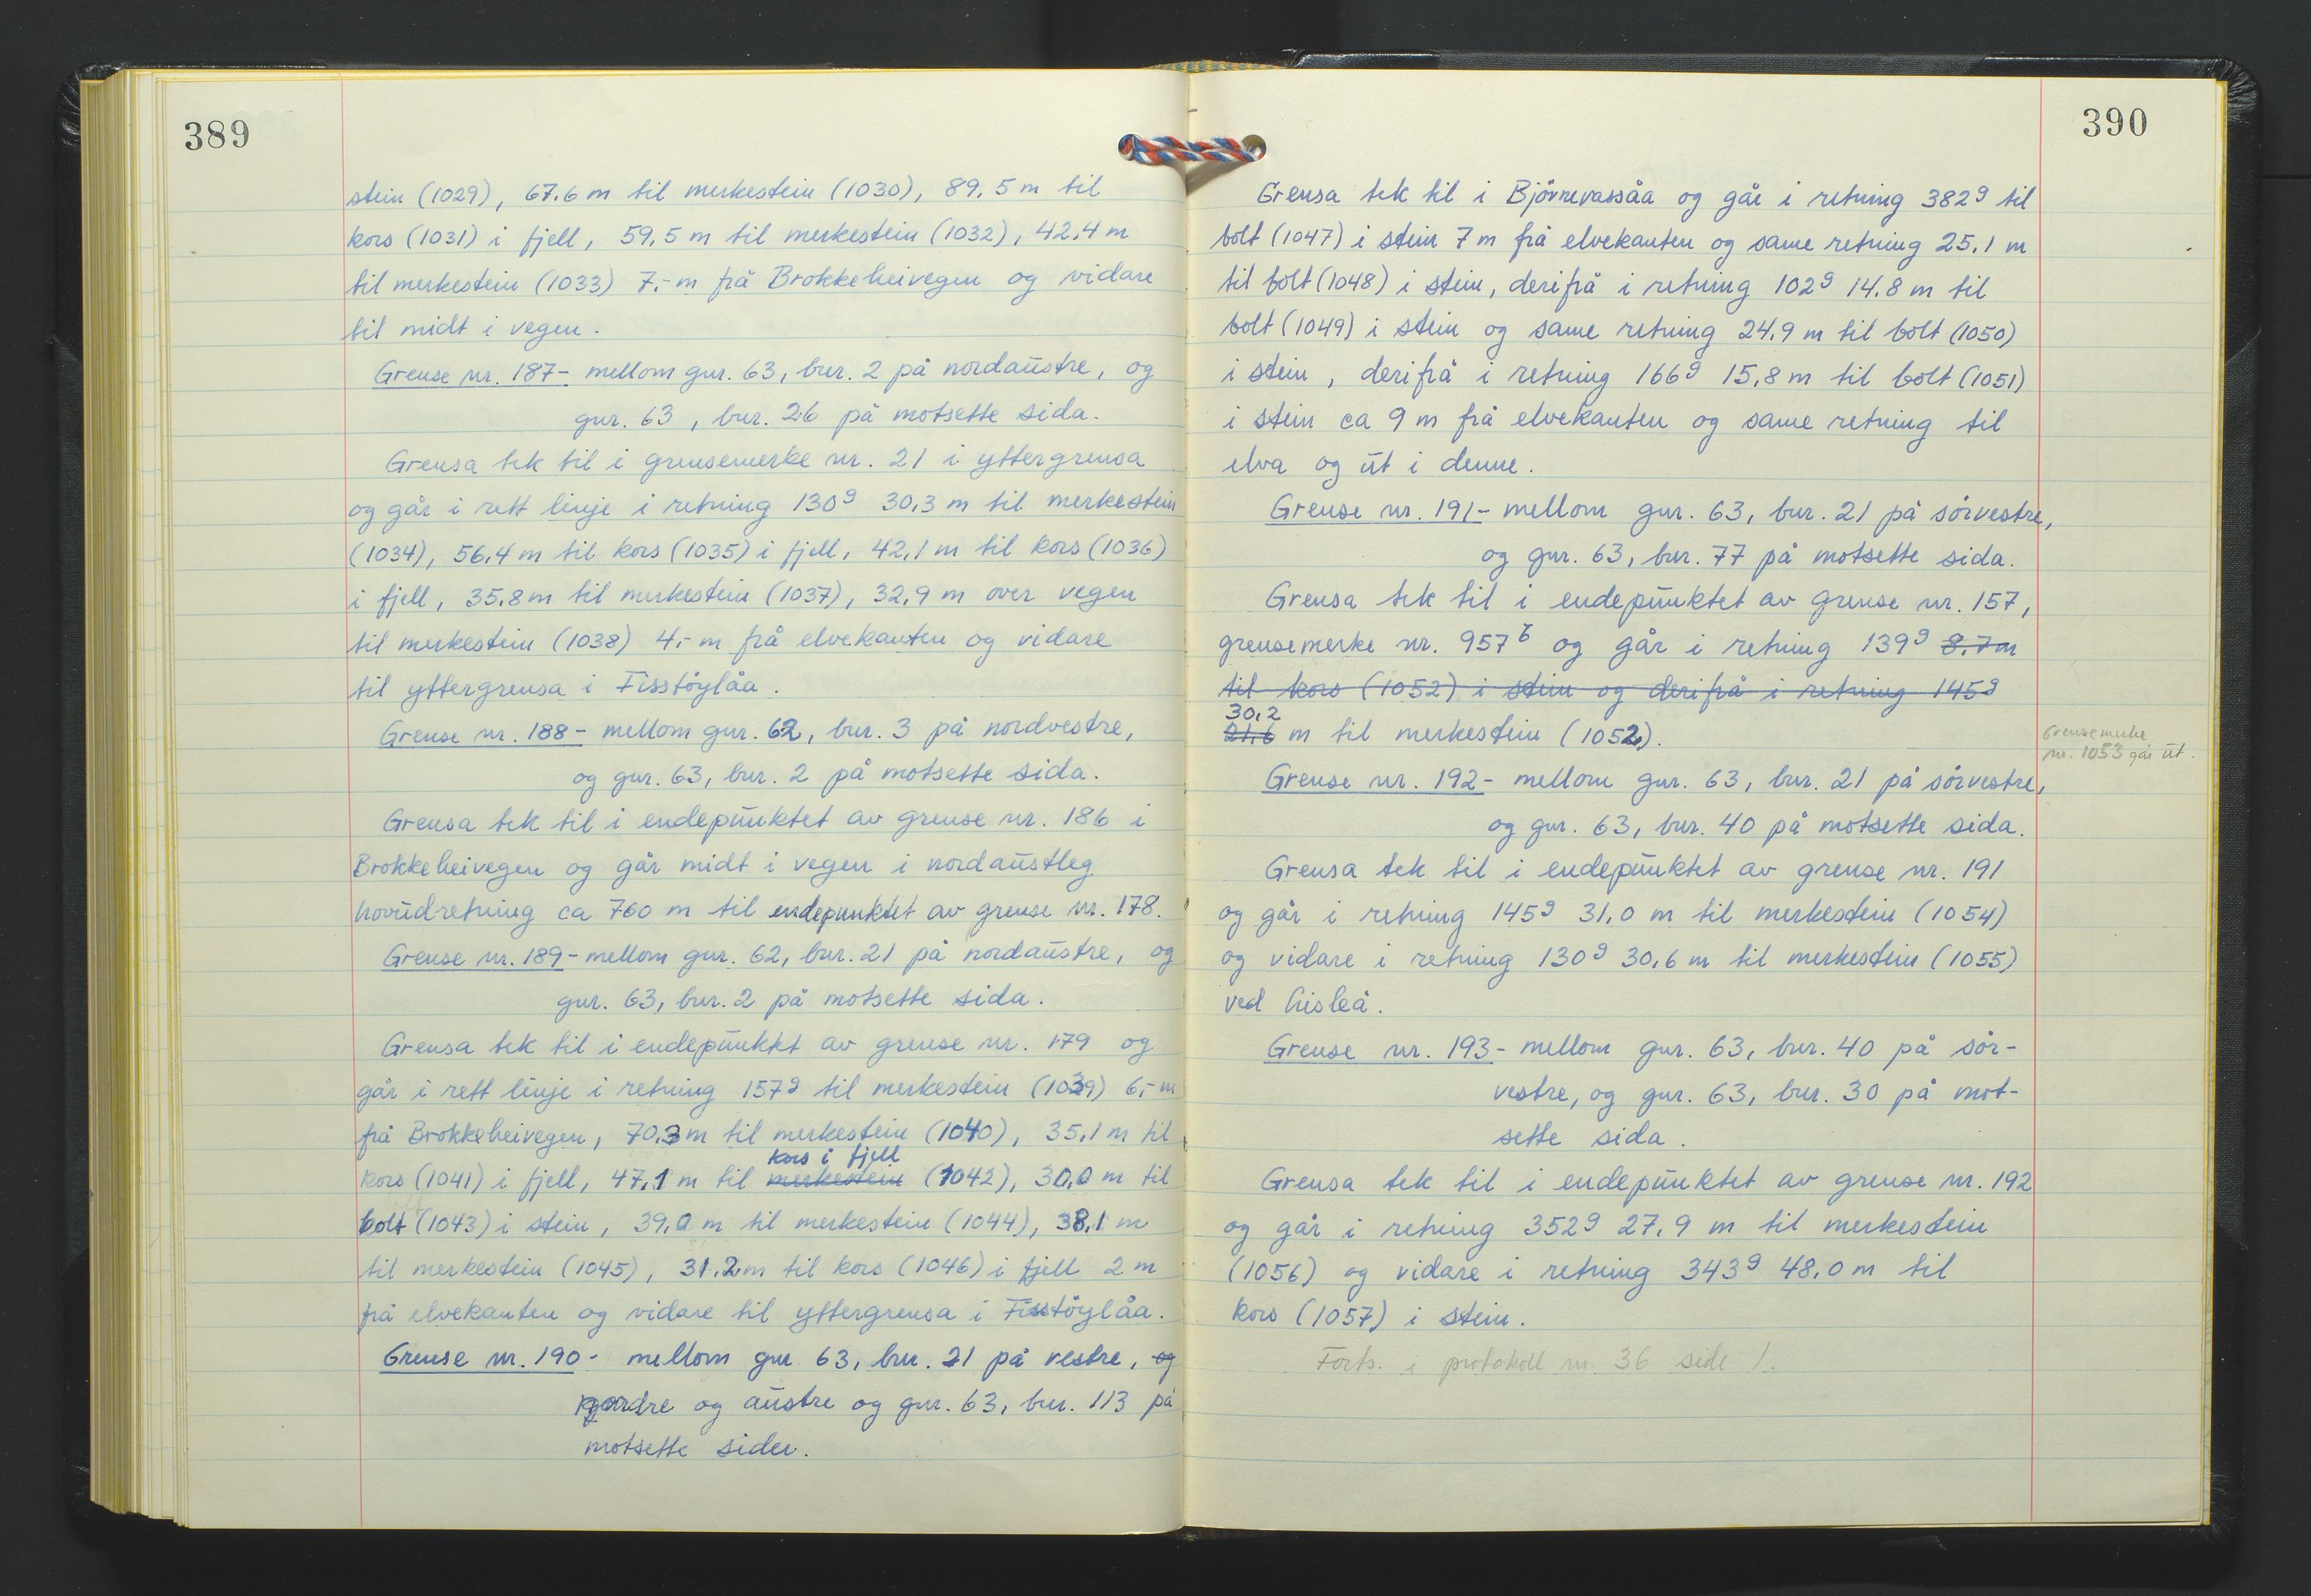 389
stein (1029), 67.6 m til merkestein (1030), 89.5 m til
kors (1031) i fjell, 59.5 m til merkestein (1032), 42.4 m
til merkestein (1033) 7.- m frå Brokkeheivegen og vidare
til midt i vegen.
Grense nr. 187- mellom gnr. 63, bnr. 2 på nordaustre, og
gnr. 63, bnr. 26 på motsette sida.
Grensa tek til i grensemerke nr. 21 i yttergrensa
og går i rett linje i retning 130g 30.3 m til merkestein
(1034), 56.4 m til kors (1035) i fjell, 42.1 m til kors (1036)
i fjell, 35.8 m til merkestein (1037), 32.9 m over vegen
til merkestein (1038) 4.- m frå elvekanten og vidare
til yttergrensa i Fisstöylåa.
Grense nr. 188- mellom gnr. 62, bnr. 3 på nordvestre,
og gnr. 63, bnr. 2 på motsette sida.
Grensa tek til i endepunktet av grense nr. 186 i
Brokkeheivegen og går midt i vegen i nordaustleg
hovudretning ca 760 m til endepunktet av grense nr. 178.
Grense nr. 189- mellom gnr. 62, bnr. 21 på nordaustre, og
gnr. 63, bnr. 2 på motsette sida.
Grensa tek til i endepunktet av grense nr. 179 og
går i rett linje i retning 157g til merkestein (1039) 6.- m
frå Brokkeheivegen, 70.3 m til merkestein (1040), 35.1 m til
kors i fjell
kors (1041) i fjell, 47.1 m til merkestein (1042), 30.0 m til
bolt (1043) i stein, 39.0 m til merkestein (1044), 38.1 m
til merkestein (1045), 31.2 m til kors (1046) i fjell 2 m
frå elvekanten og vidare til yttergrensa i Fisstöylåa.
Grense nr. 190- mellom gnr. 63, bnr. 21 på vestre, og
nordre og austre og gnr. 63, bnr. 113 på
motsette sider.
390
Grensa tek til i Bjövnevassåa og går i retning 382g til
bolt (1047) i stein 7 m frå elvekanten og same retning 25.1 m
til bolt (1048) i stein, derifrå i retning 102g 14.8 m til
bolt (1049) i stein og same retning 24.9 m til bolt (1050)
i stein, derifrå i retning 166g 15.8 m til bolt (1051)
i stein ca 9 m frå elvekanten og same retning til
elva og ut i denne.
Grense nr. 191- mellom gnr. 63, bnr. 21 på sörvestre,
og gnr. 63, bnr. 77 på motsette sida.
Grensa tek til i endepunktet av grense nr. 157,
grensemerke nr. 957b og går i retning 139g 8.7 m
til kors (1052) i stein og derifrå i retning 145g
30.2
21.6 m til merkestein (1052).
Grensemerke
nr. 1053 går ut.
Grense nr. 192- mellom gnr. 63, bnr. 21 på sörvestre,
og gnr. 63, bnr. 40 på motsette sida.
Grensa tek til i endepunktet av grense nr. 191
og går i retning 145g 31.0 m til merkestein (1054)
og vidare i retning 130g 30.6 m til merkestein (1055)
ved Lisleå.
Grense nr. 193- mellom gnr. 63, bnr. 40 på sör-
vestre, og gnr. 63, bnr. 30 på mot-
sette sida.
Grensa tek til i endepunktet av grense nr. 192
og går i retning 352g 27.9 m til merkestein
(1056) og vidare i retning 343g 48.0 m til
kors (1057) i stein.
Forts. i protokoll nr. 36 side 1.